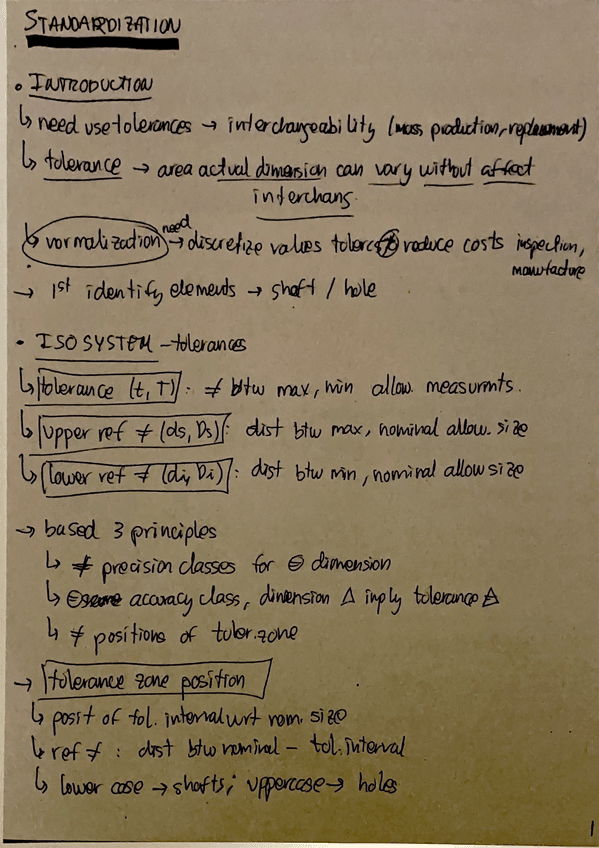 STANDARDIZATION
• INTRODUCTION
↳ need use tolerances → interchangeability (mass production, replacement)
↳ tolerance → area actual dimension can vary without affect
interchang.
↳ normalization need → discretize values reduce costs inspection,
manufacture
→ 1st identify elements → shaft / hole
• ISO SYSTEM – tolerances
↳ tolerance (t, T): ≠ btw max, min allow. measurmts.
↳ upper ref ≠ (ds, Ds): dist btw max, nominal allow. size
↳ lower ref ≠ (di, Di): dist btw min, nominal allow size
→ based 3 principles
↳ ≠ precision classes for ⊖ dimension
↳ ⊖ accuracy class, dimension Δ imply tolerance Δ
↳ ≠ positions of toler. zone
→ tolerance zone position
↳ posit of tol. interval wrt nom. size
↳ ref ≠ : dist btw nominal – tol. interval
↳ lower case → shafts; uppercase → holes
1